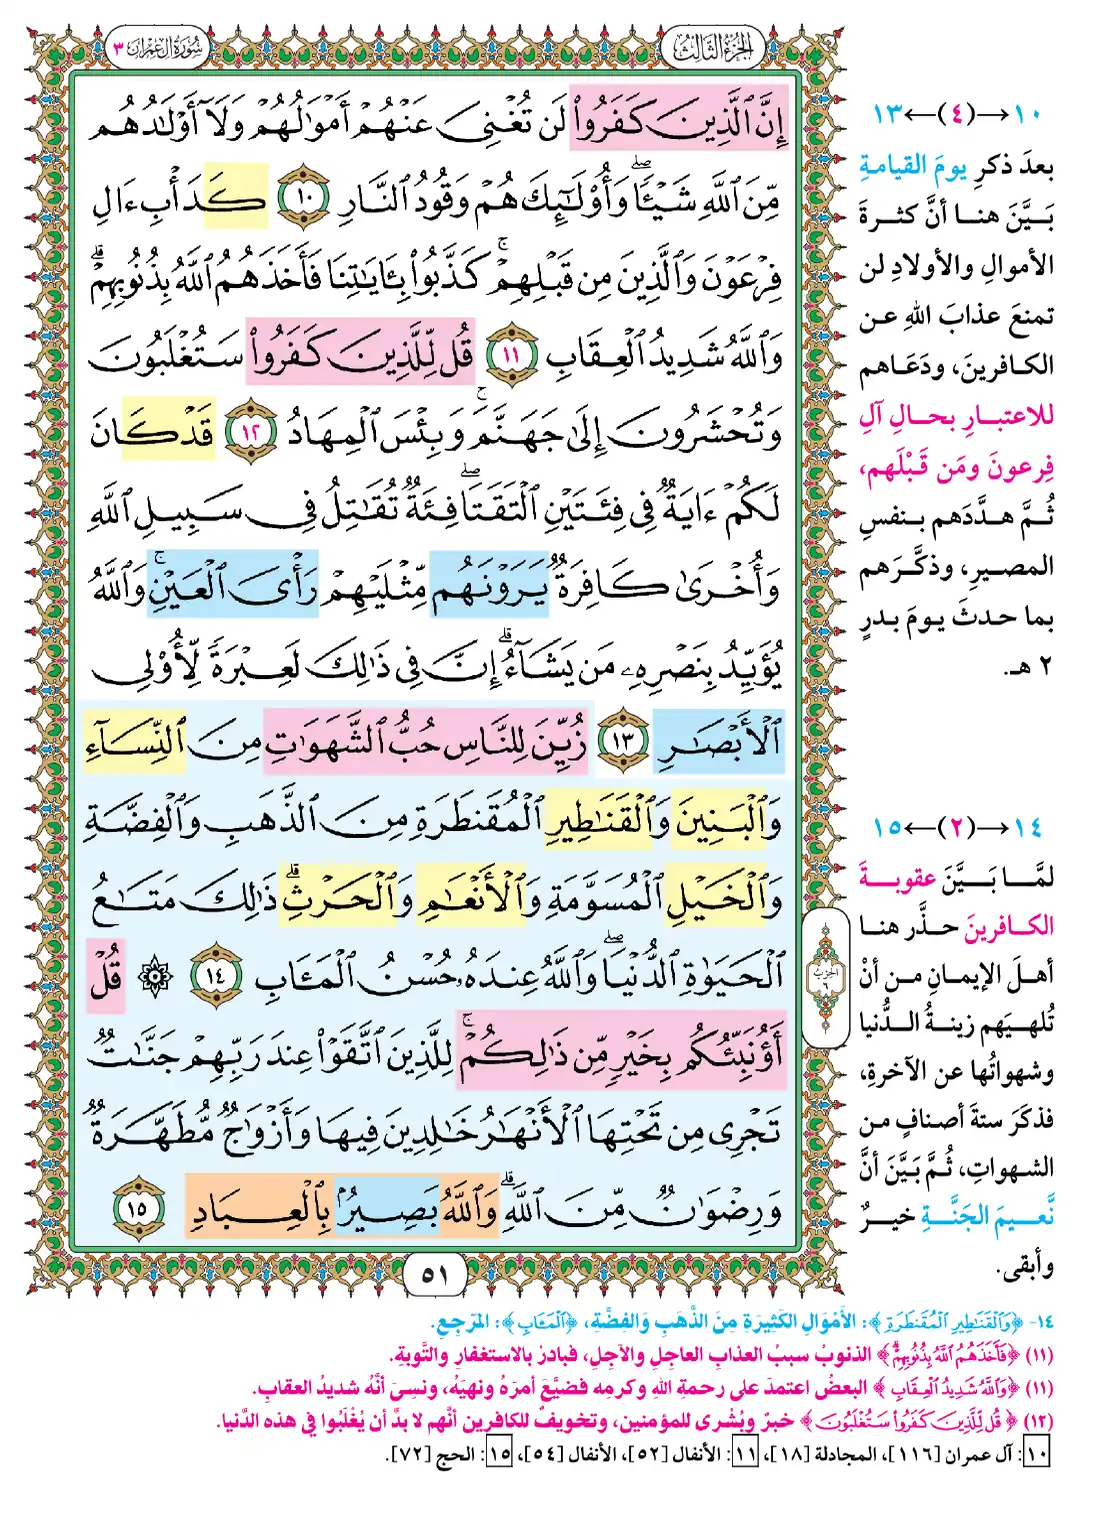 سُورَةُ آلِ عِمْرَانَ ٣
الجُزْءُ الثَّالِثُ
إِنَّ ٱلَّذِينَ كَفَرُوا۟ لَن تُغْنِىَ عَنْهُمْ أَمْوَٰلُهُمْ وَلَآ أَوْلَٰدُهُم
مِّنَ ٱللَّهِ شَيْـًٔا ۖ وَأُو۟لَٰٓئِكَ هُمْ وَقُودُ ٱلنَّارِ ١٠ كَدَأْبِ ءَالِ
فِرْعَوْنَ وَٱلَّذِينَ مِن قَبْلِهِمْ ۚ كَذَّبُوا۟ بِـَٔايَٰتِنَا فَأَخَذَهُمُ ٱللَّهُ بِذُنُوبِهِمْ ۗ
وَٱللَّهُ شَدِيدُ ٱلْعِقَابِ ١١ قُل لِّلَّذِينَ كَفَرُوا۟ سَتُغْلَبُونَ
وَتُحْشَرُونَ إِلَىٰ جَهَنَّمَ ۚ وَبِئْسَ ٱلْمِهَادُ ١٢ قَدْ كَانَ
لَكُمْ ءَايَةٌ فِى فِئَتَيْنِ ٱلْتَقَتَا ۖ فِئَةٌ تُقَٰتِلُ فِى سَبِيلِ ٱللَّهِ
وَأُخْرَىٰ كَافِرَةٌ يَرَوْنَهُم مِّثْلَيْهِمْ رَأْىَ ٱلْعَيْنِ ۚ وَٱللَّهُ
يُؤَيِّدُ بِنَصْرِهِۦ مَن يَشَآءُ ۗ إِنَّ فِى ذَٰلِكَ لَعِبْرَةً لِّأُو۟لِى
ٱلْأَبْصَٰرِ ١٣ زُيِّنَ لِلنَّاسِ حُبُّ ٱلشَّهَوَٰتِ مِنَ ٱلنِّسَآءِ
وَٱلْبَنِينَ وَٱلْقَنَٰطِيرِ ٱلْمُقَنطَرَةِ مِنَ ٱلذَّهَبِ وَٱلْفِضَّةِ
وَٱلْخَيْلِ ٱلْمُسَوَّمَةِ وَٱلْأَنْعَٰمِ وَٱلْحَرْثِ ۗ ذَٰلِكَ مَتَٰعُ
ٱلْحَيَوٰةِ ٱلدُّنْيَا ۖ وَٱللَّهُ عِندَهُۥ حُسْنُ ٱلْمَـَٔابِ ١٤ ۞ قُلْ
أَؤُنَبِّئُكُم بِخَيْرٍ مِّن ذَٰلِكُمْ ۚ لِلَّذِينَ ٱتَّقَوْا۟ عِندَ رَبِّهِمْ جَنَّٰتٌ
تَجْرِى مِن تَحْتِهَا ٱلْأَنْهَٰرُ خَٰلِدِينَ فِيهَا وَأَزْوَٰجٌ مُّطَهَّرَةٌ
وَرِضْوَٰنٌ مِّنَ ٱللَّهِ ۗ وَٱللَّهُ بَصِيرٌۢ بِٱلْعِبَادِ ١٥
٥١
الحزب
٦
١٠→(٤)←١٣
بعدَ ذكرِ يومَ القيامةِ
بَيَّنَ هنا أنَّ كثرةَ
الأموالِ والأولادِ لن
تمنعَ عذابَ اللهِ عن
الكافرينَ، ودَعَاهم
للاعتبارِ بحالِ آلِ
فِرعونَ ومَن قَبْلَهم،
ثُمَّ هدَّدَهم بنفسِ
المصيرِ، وذكَّرَهم
بما حدثَ يومَ بدرٍ
٢ هـ.
١٤→(٢)←١٥
لمَّا بَيَّنَ عقوبةَ
الكافرينَ حذَّر هنا
أهلَ الإيمانِ من أنْ
تُلهيَهم زينةُ الدُّنيا
وشهواتُها عن الآخرةِ،
فذكَرَ ستةَ أصنافٍ من
الشهواتِ، ثُمَّ بَيَّنَ أنَّ
نَّعيمَ الجَنَّةِ خيرٌ
وأبقى.
١٤- ﴿وَٱلْقَنَٰطِيرِ ٱلْمُقَنطَرَةِ﴾: الأَمْوَالِ الكَثِيرَةِ مِنَ الذَّهَبِ وَالفِضَّةِ، ﴿ٱلْمَـَٔابِ﴾: المَرْجِعِ.
(١١) ﴿فَأَخَذَهُمُ ٱللَّهُ بِذُنُوبِهِمْ ۗ﴾ الذنوبُ سببُ العذابِ العاجلِ والآجلِ، فبادرْ بالاستغفارِ والتَّوبةِ.
(١١) ﴿وَٱللَّهُ شَدِيدُ ٱلْعِقَابِ﴾ البعضُ اعتمدَ على رحمةِ اللهِ وكرمِه فضيَّعَ أمرَهُ ونهيَهُ، ونسِيَ أنَّهُ شديدُ العقابِ.
(١٢) ﴿قُل لِّلَّذِينَ كَفَرُوا۟ سَتُغْلَبُونَ﴾ خبرٌ وبُشْرى للمؤمنين، وتخويفٌ للكافرين أنَّهم لا بدَّ أن يُغْلَبُوا في هذه الدَّنيا.
١٠: آل عمران [١١٦]، المجادلة [١٨]، ١١: الأنفال [٥٢]، الأنفال [٥٤]، ١٥: الحج [٧٢].